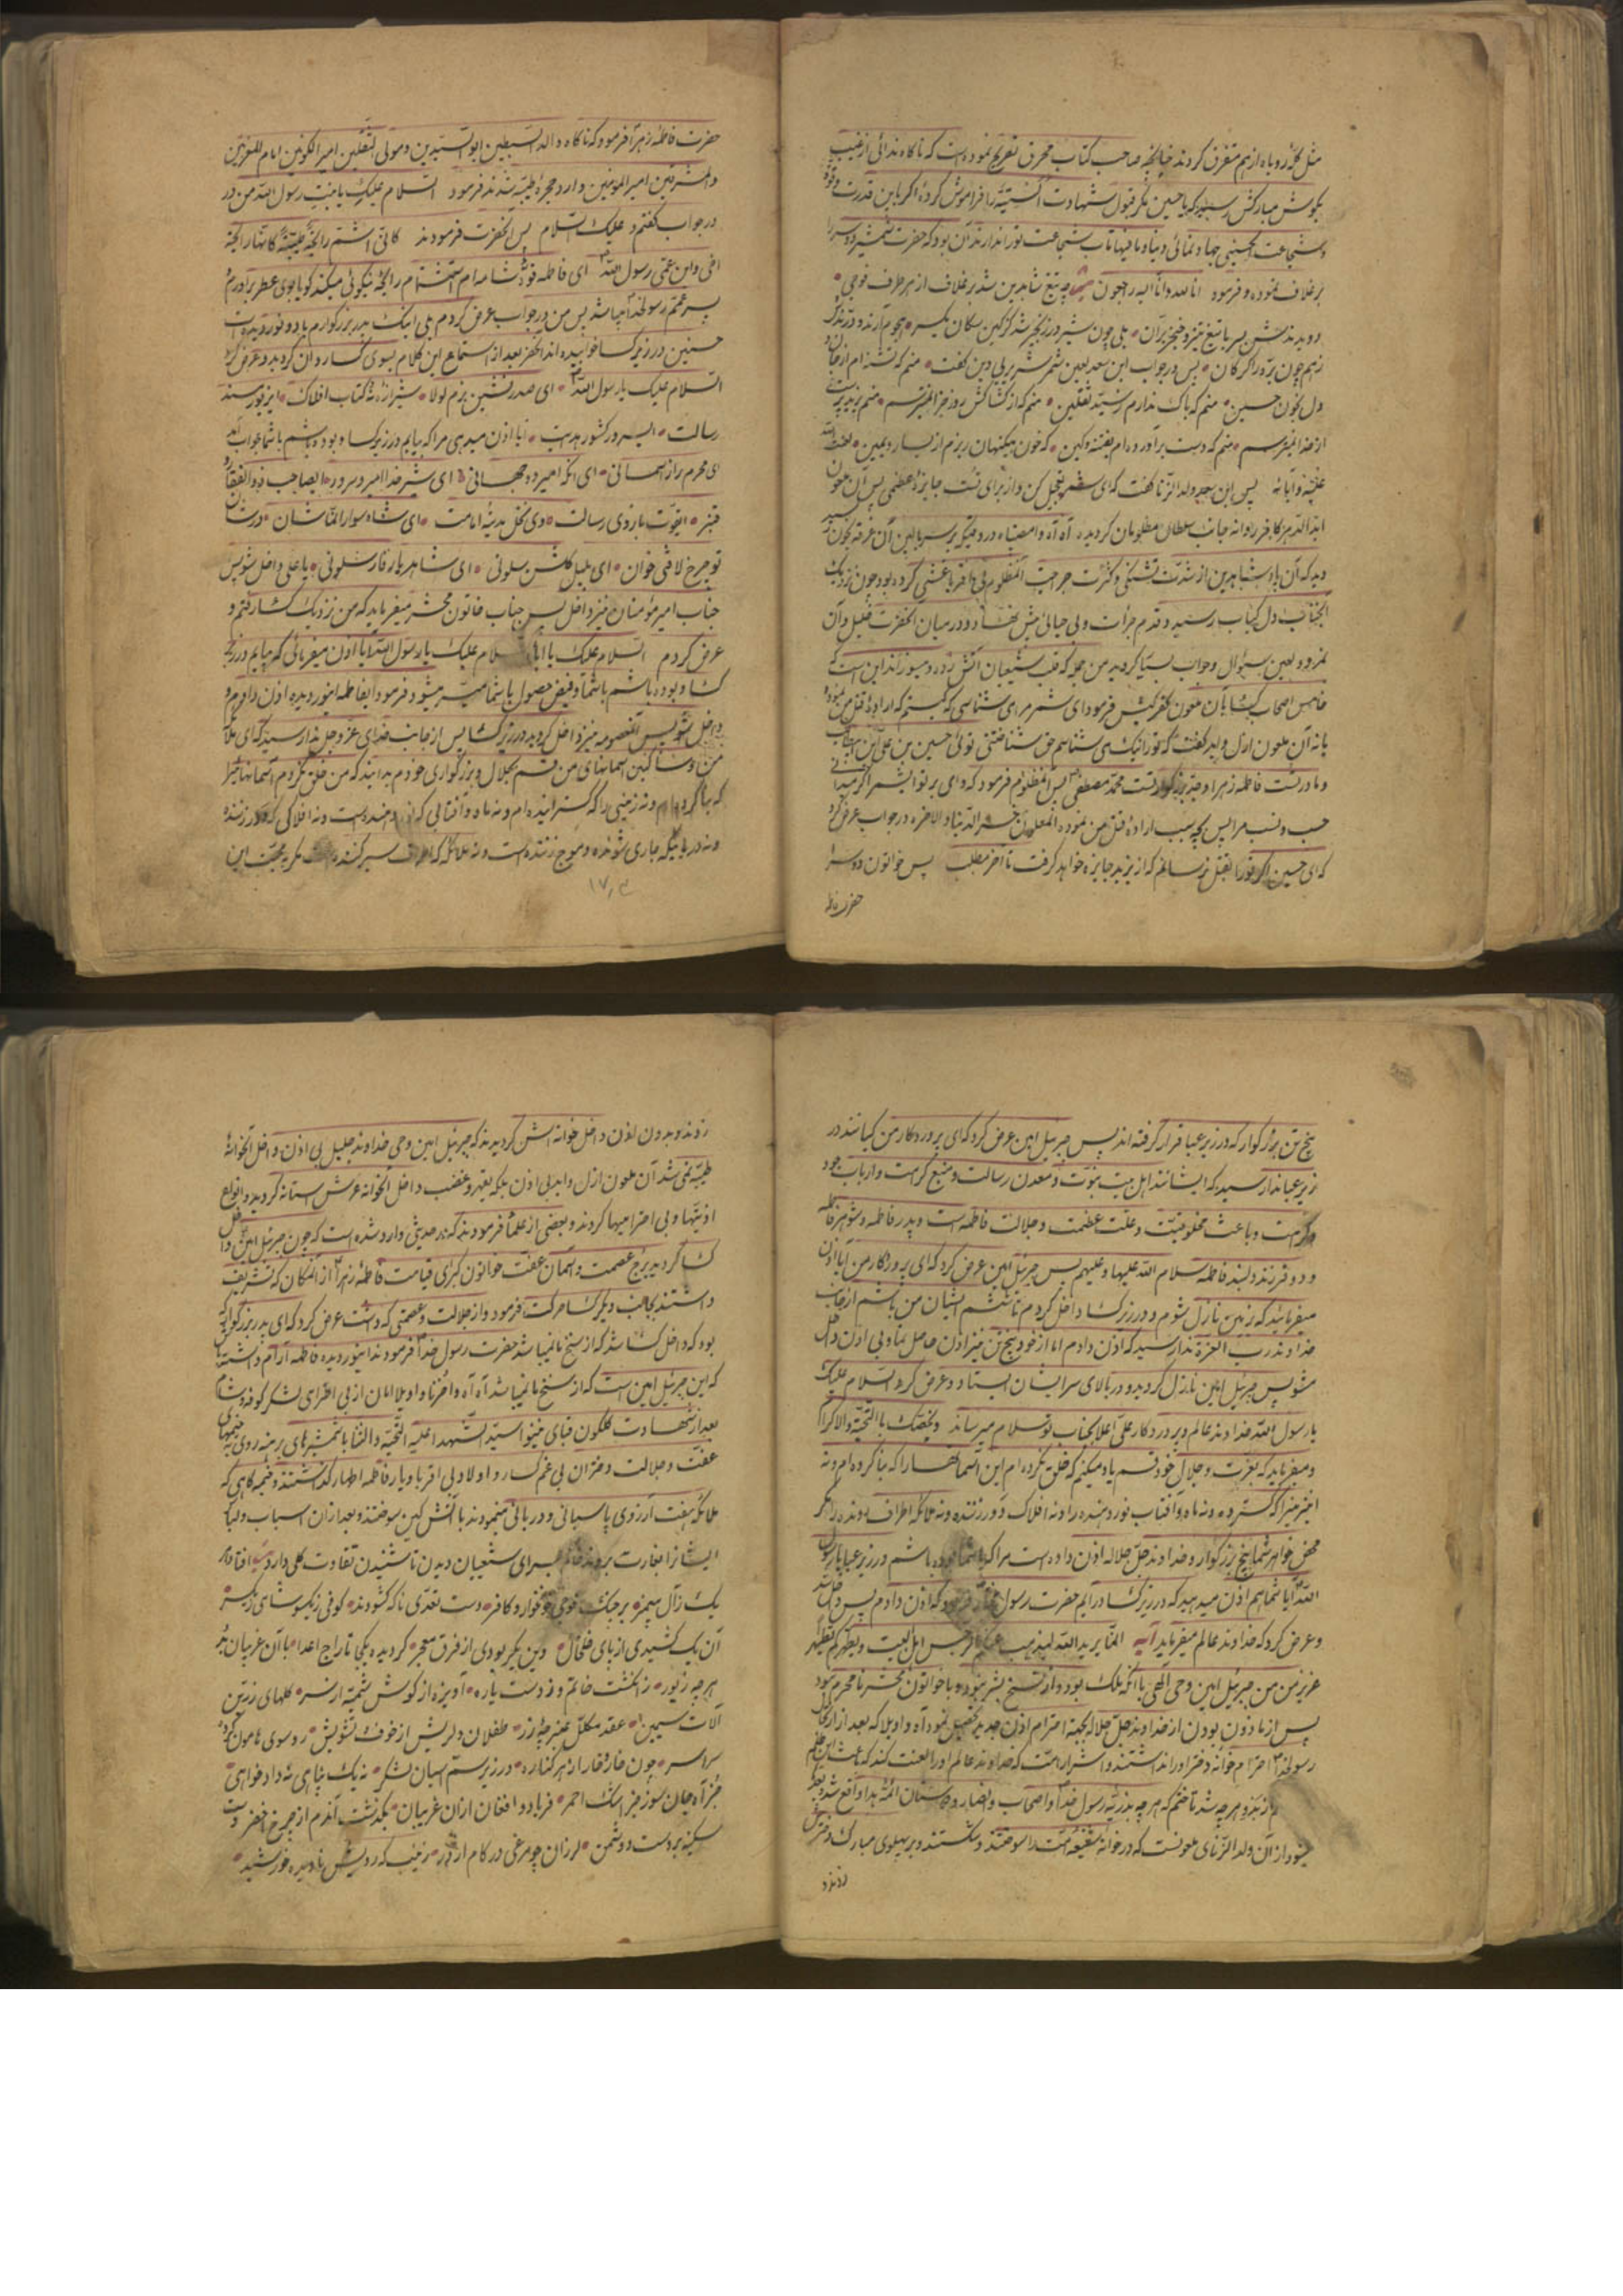 مثل گله روباه از هم متفرق کردند چنانچه صاحب کتاب محرق تصریح نموده است که ناگاه ندائی از غیب
بگوش مبارکش رسید که یا حسین مگر قبول شهادت را فراموش کرده اگر باین قدرت و قوه
و شجاعت حسینی جهاد نمائی دنیا و مافیها تاب شجاعت تو را ندارند آن بود که حضرت شمشیر دو سر را
بر غلاف نموده و فرمود انا لله و انا الیه راجعون چه تیغ شاه دین شد بر غلاف از هر طرف فوجی
دویدندش بسر با تیغ تیز و خنجر بران بلی چون شیر در زنجیر شد کین سگان یکسر هجوم آرند و درندش
ز هم چون بره را گرگان پس در جواب ابن سعد لعین شمر شریر بی دین گفت منم که تشنه ام از جان و
دل بخون حسین منم که باک ندارم ز سید ثقلین منم که از کشاکش روز جزا نمیترسم منم یزید پرست
از خدا نمیترسم منم که دست برآورده ام بفتنه و کین که خون بیگنهان ریزم از یسار و یمین لعنت الله
علیه و آبائه پس ابن سعد ولد الزنا گفت که ای شمر تعجیل کن و از برای تست جایزه عظمی پس آن ملعون
ابد الدهر کافر روانه جانب سلطان مظلومان کردید آه آه وامصیبتاه در وقتیکه بر سر بالین آن غرقه بخون رسید
دید که آن پادشاه دین از شدت تشنگی و کثرت جراحت آنمظلوم بی اقربا غشی کرده بود چون نزدیک
آنجناب دل کباب رسید و قدم جرات و بی حیائی پیش نهاد و در میان آنحضرت خلیل و آن
نمرود لعین سئوال و جواب بسیار کردید من جمله که قلب شیعیان آتش زده و میسوزاند این است که
خامس اصحاب کسا بآن ملعون کفر کیش فرمود ای شمر مرا می شناسی که کیستم که اراده قتل من نموده
یا نه آن ملعون ازل و ابد گفت که تو را نیک می شناسم حق شناختنی توئی حسین بن علی ابن ابیطالب
و مادرت فاطمه زهرا و جد بزرگوارت محمد مصطفی پس آنمظلوم فرمود که وای بر تو ای شمر اگر میدانی
حسب و نسب مرا پس بچه سبب اراده قتل من نموده المعلون خسر الدنیا و الاخره در جواب عرض کرد
که ای حسین اگر تو را بقتل نرسانم که از یزید جایزه خواهد گرفت تا آخر مطلب پس خواتون دو سرا
حضرت فاطمه
حضرت فاطمه زهرا فرمود که ناگاه والد السبطین ابو السیدین و مولی الثقلین امیر الکونین امام المغربین
و المشرقین امیر المومنین وارد حجره طیبه شدند فرمود السلام علیک یا بنت رسول الله من در
در جواب گفتم و علیک السلام پس آنحضرت فرمودند کانی اشتم رایحة طیبة کانها رایحة
اخی و ابن عمی رسول الله ای فاطمه قوه شامه ام استشمام رایحه نیکوئی میکند کویا بوی عطر برادرم
پسر عمم رسولخدا میباشد پس من در جواب عرض کردم بلی اینک پدر بزرکوارم با دو نور دیده ات
حسنین در زیر کسا خوابیده اند آنحضرت بعد از استماع این کلام بسوی کسا روان کردید و عرض کرد
السلام علیک یا رسول الله ای صدر نشین بزم لولا شیرازه نه کتاب افلاک ای زیور مسند
رسالت ای سرور کشور هدایت آیا اذن میدهی مرا که بیایم در زیر کسا و بوده باشم با شما جواب آمد
ای محرم راز آسمانی ای آنکه امیر دو جهانی ای شیر خدا امیر و سرور ای صاحب ذو الفقار و
قنبر ای قوت بازوی رسالت وی نخل مدینه امامت ای شاه سوار لافتی شان در شان
تو چرخ لافتی خوان ای بلبل گلشن سلونی ای شاهد یار فار سلونی یا علی داخل شو پس
جناب امیر مؤمنان نیز داخل پس جناب خاتون محشر میفرماید که من نزدیک کسا رفتم و
عرض کردم السلام علیک یا ابتاه السلام علیک یا رسول الله آیا اذن میفرمائی که بیایم در زیر
کسا و بوده باشم با شما و فیض حصول با شما میسر میشود فرمود ای فاطمه ای نور دیده اذن دادم و
داخل شو پس آنمعصومه نیز داخل کردید در زیر کسا پس از جانب خدای عز و جل ندا رسید که ای ملائکه
من و ساکنین آسمانهای من قسم بجلال و بزرکواری خودم بدانید که من خلق نکردم آسمانها را
که بنا کرده ام و نه زمینی را که کسترانیده ام و نه ماه و آفتابی که نور دهنده است و نه افلاکی که دور زننده
و نه دریائیکه جاری شونده و موج زننده است و نه ملائکه که سیر کننده است مگر بمحبت این
پنج تن بزرکوار که در زیر عبا قرار گرفته اند پس جبرئیل امین عرض کرد که ای پروردکار من کیانند در
زیر عبا ندا رسید که ایشانند اهل بیت نبوت و معدن رسالت و منبع کرامت و ارباب جود
و کرامت و باعث مخلوقیت و علت عظمت و جلالت فاطمه است و پدر فاطمه و شوهر فاطمه
و دو فرزند دلبند فاطمه سلام الله علیها و علیهم پس جبرئیل امین عرض کرد که ای پروردکار من آیا اذن
میفرمائید که زمین نازل شوم و در زیر کسا داخل کردم تا ششم ایشان من باشم از جانب
خداوند رب العزة ندا رسید که اذن دادم اما از خود پنج تن نیز اذن حاصل نما و بی اذن داخل
مشو پس جبرئیل امین نازل کردید و در بالای سر ایشان ایستاد و عرض کرد السلام علیک
یا رسول الله خداوند عالم و پروردکار علی اعلا بجناب تو سلام میرساند و یخصک بالتحیة والاکرام
و میفرماید که بعزت و جلال خود قسم یاد میکنم که خلق نکرده ام این آسمانها را که بنا کرده ام و نه
این زمین را که کسترده و نه ماه و آفتاب نور دهنده را و نه افلاک دور زننده و نه ملائکه اطراف رونده را مگر
محض خواهر شما پنج بزرکوار و خداوند جل جلاله اذن داده است مرا که با شما بوده باشم در زیر عبا یا رسول
الله آیا شما هم اذن میدهید که در زیر کسا درآیم حضرت رسول مختار فرمود که اذن دادم پس داخل شد
و عرض کرد که خداوند عالم میفرماید آیه انما یرید الله لیذهب عنکم الرجس اهل البیت و یطهرکم تطهیرا
عزیز من من جبرئیل امین وحی الهی با آنکه ملک بود و از سنخ بشر نبود و با خواتون محشر نا محرم نبود
پس از ماذون بودن از خداوند جل جلاله بجهة احترام اذن جدید تحصیل نمود آه و اویلا که بعد از ارتحال
رسولخدا احترام خوانه دختر او را نداشتند و اشرار امت که خداوند عالم او را لعنت کند که باعث این ظلم
هر چه شد تا ختم که هر چه بذریه رسول خدا و اصحاب و انصار و دوستان ائمه هدا واقع شد و بعد
میشود از آن ولد الزنای ملعونست که در خوانه شفیعه امت را سوختند و شکستند و بر پهلوی مبارک دخترش
زدند و
زدند و بدون اذن داخل خوانه اش کردیدند که جبرئیل امین وحی خداوند جلیل بی اذن داخل آنخوانه
طیبه نمی شد آن ملعون ازل و ابد بی اذن بلکه بقهر و غضب داخل آنخوانه عرش ستانه کردید و انواع
اذیتها و بی احترامیها کردند و بعضی از علما فرمودند که در حدیثی وارد شده است که چون جبرئیل امین داخل
کسا کردید برج عصمت و آسمان عفت خواتون کبرای قیامت فاطمه زهرا از آنمکان که تشریف
داشتند بجانب دیگر کسا حرکت فرمود و از جلالت و عصمتی که داشت عرض کرد که ای پدر بزرکوار که
بود که داخل کسا شد که از سنخ ما نمیباشد حضرت رسول خدا فرمودند ای نور دیده فاطمه آرام داشته باش
که این جبرئیل امین است که از سنخ ما نمیباشد آه آه واحزنا و اویلا امان از بی احترای لشکر کوفه و شام
بعد از شهادت گلگون قبای نینوا سید الشهدا علیه التحیه و الثنا با شمشیرهای برهنه روی به خیمهای
عفت و جلالت دختران بی غمگسار و اولاد بی اقربا و یار فاطمه اطهار گذاشتند و خیمه گاهی که
ملائکه هفت آرزوی پاسبانی و دربانی مینمودند با آتش کین سوختند و بعد از آن اسباب و لباس
ایشانرا بغارت بردند برای شیعیان دیدن تا شنیدن تفاوت کلی دارد افتاد
یک زال بر چنگ خونخوار و کافر دست تعدی ناکه کشودند کوفی ز یکسو شامی ز دیگر
آن یک کشیدی از پای خلخال وین یک ربودی از فرق معجر کردیده یکجا تاراج اعدا با آن غریبان
هر چه زیور ز انگشت خاتم و ز دست یاره آویزه از گوش شمسیه از سر گلهای زرین
آلات سیمین عقد مکلل عنبرچه زر طفلان دلریش از خوف و تشویش رو سوی هامون کرده
سراسر چون خار و فار از هر کناره در زیر سم اسبان لشکر نه یک پناهی نه دادخواهی
جز آه جان سوز جز اشک احمر فریاد و افغان ازان غریبان بگذشت آندم از چرخ اخضر
سکینه بر دست دشمن لرزان چو مرغی در کام اژدر زینب که رویش نادیده خورشید